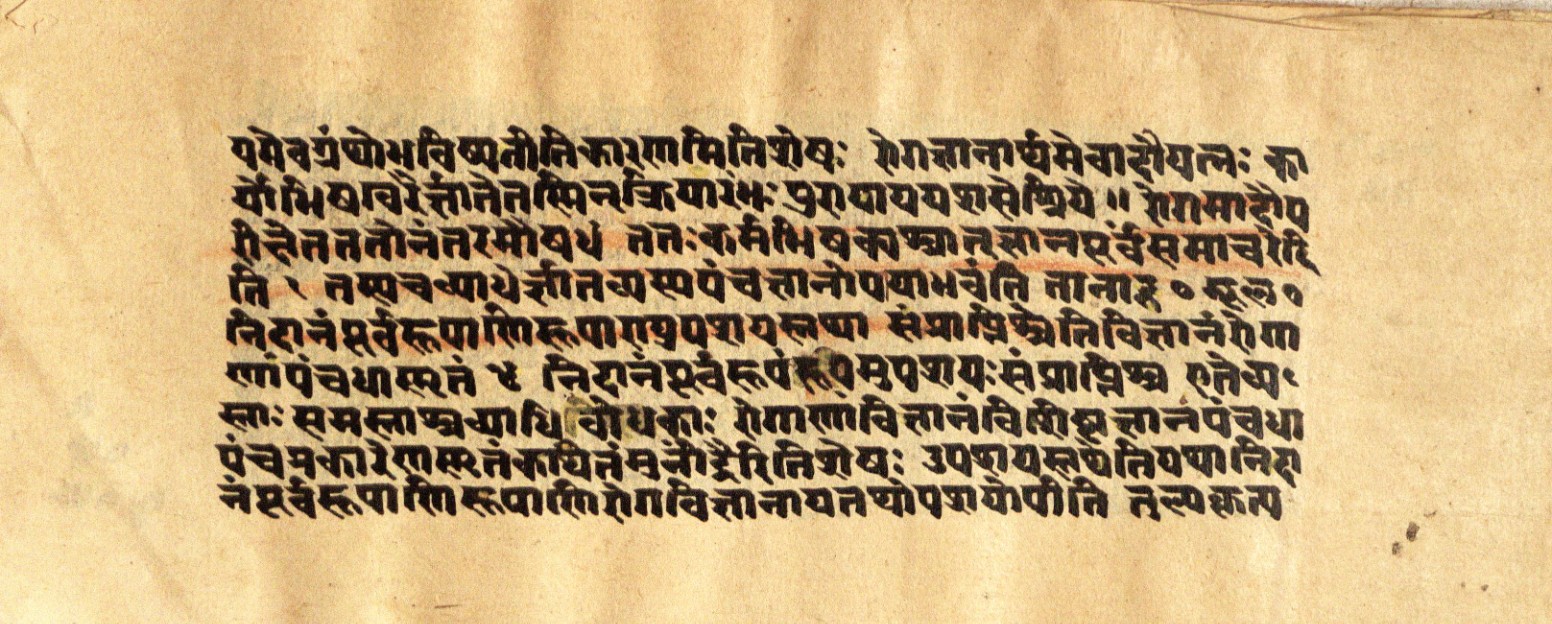 यमेवग्रंथोभविष्यतीतिकारणमितिशेषः रोगज्ञानार्थमेवादौयत्नः का
र्योभिषग्वरैर्ज्ञातेतस्मिन्क्रियारंभः पुरायाययशसेश्रिये ॥ रोगमादौप
रीक्षेतततोनंतरमौषधं ततःकर्मभिषक्पश्चातज्ञानपूर्वंसमाचरेदि
ति १ तस्यचव्याधेर्ज्ञातव्यस्यपंचज्ञानोपायाभवंति तानाह ० मूल ०
निदानंपूर्वंरूपाणिरूपाण्युपशयस्तथा संप्राप्तिश्चेतिविज्ञानंरोगा
णांपंचधास्मृतं ४ निदानंपूर्वंरूपंरूपमुपशयःसंप्राप्तिश्च एतेव्य
स्ताः समस्ताश्चव्याधिबोधकाः रोगाणांविज्ञानंविशिष्टज्ञानंपंचधा
पंचप्रकारेणस्मृतंकथितंमुनींद्रैरितिशेषः उपशयस्तथेतियथानिदा
नंपूर्वंरूपाणिरूपाणिरोगविज्ञानायतथोपशयोपीति तुल्यकत्य